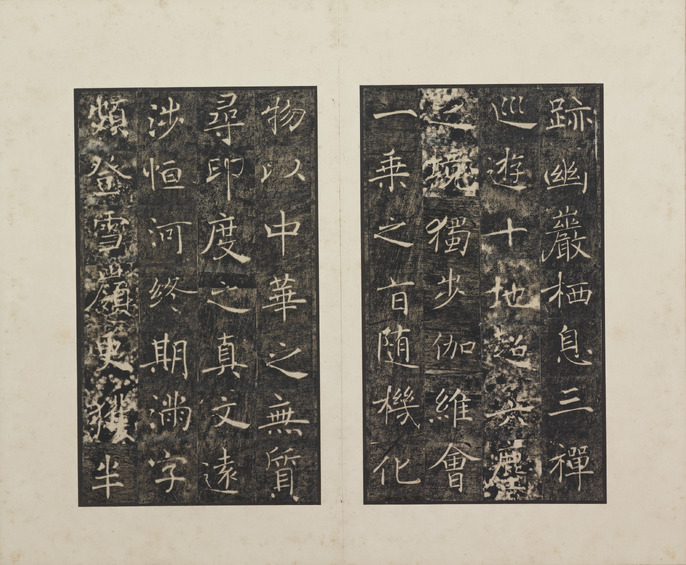 跡幽巖栖息三禪
巡遊十地超六塵
之境獨步伽維會
一乘之旨隨機化
物以中華之無質
尋印度之真文遠
涉恒河終期滿字
頻登雪嶺更獲半